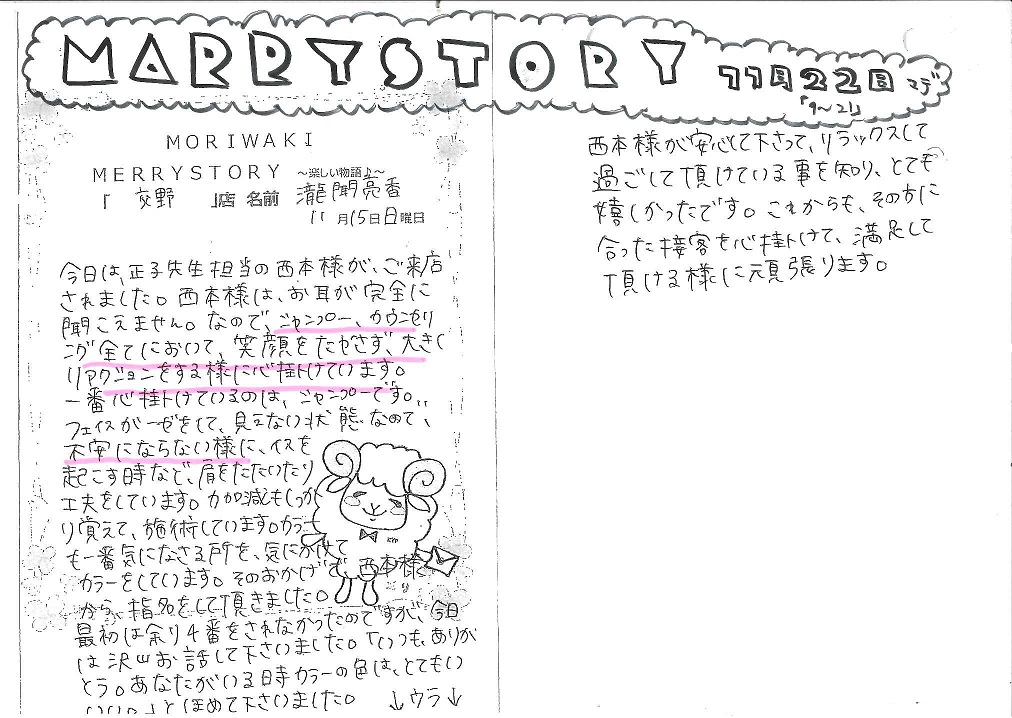 MARRYSTORY 11月22日マデ
「9～21」
MORIWAKI
MERRYSTORY ～楽しい物語♪～
「 交野 」店 名前 瀧聞亮香
11 月15日日曜日
今日は、正子先生担当の西本様が、ご来店
されました。西本様は、お耳が完全に
聞こえません。なので、シャンプー、カウンセリ
ング全てにおいて、笑顔をたやさず、大きく
リアクションをする様に心掛けています。
一番心掛けているのは、シャンプーです。
フェイスガーゼをして、見えない状態なので、
不安にならない様に、イスを
起こす時など、肩をたたいたり
工夫をしています。力加減もしっか
り覚えて、施術しています。カラー
も一番気になさる所を、気にかけて
カラーをしています。そのおかげで西本様
から、指名をして頂きました。
最初は余り4番をされなかったのですが、今日
は沢山お話して下さいました。「いつも、ありが
とう。あなたがいる時カラーの色は、とてもい
いい。」とほめて下さいました。 ↓ウラ↓
西本様が安心して下さって、リラックスして
過ごして頂けている事を知り、とても
嬉しかったです。これからも、その方に
合った接客を心掛けて、満足して
頂ける様に頑張ります。